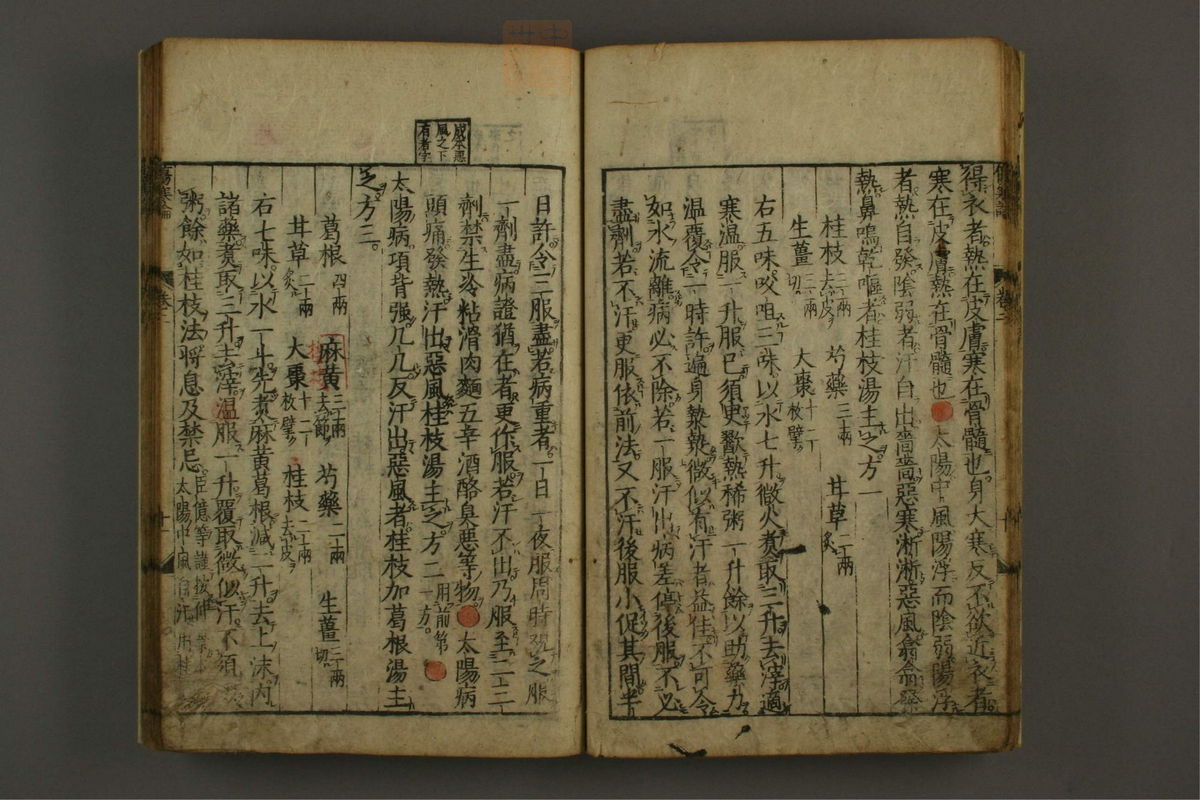 得衣者熱在皮膚寒在骨髓也身大寒反不欲近衣者
寒在皮膚熱在骨髓也太陽中風陽浮而陰弱陽浮
者熱自發陰弱者汗自出嗇嗇惡寒淅淅惡風翕翕發
熱鼻鳴乾嘔者桂枝湯主之方一
桂枝三兩去皮 芍藥三兩 甘草二兩炙
生薑三兩切 大棗十二枚擘
右五味㕮咀三味以水七升微火煑取三升去滓適
寒温服一升服已須臾歠熱稀粥一升餘以助藥力
温覆令一時許遍身漐漐微似有汗者益佳不可令
如水流離病必不除若一服汗出病差停後服不必
盡劑若不汗更服依前法又不汗後服小促其間半
日許令三服盡若病重者一日一夜服周時觀之服
一劑盡病證猶在者更作服若汗不出乃服至二三
劑禁生冷粘滑肉麵五辛酒酪臭惡等物太陽病
頭痛發熱汗出惡風桂枝湯主之方二用前第一方
太陽病項背强几几反汗出惡風者桂枝加葛根湯主
之方三
葛根四兩 麻黄三兩去節 芍藥二兩 生薑三兩切
甘草二兩炙 大棗十二枚擘 桂枝二兩去皮
右七味以水一斗先煑麻黄葛根減二升去上沫内
諸藥煑取三升去滓温服一升覆取微似汗不須
粥餘如桂枝法將息及禁忌臣億等謹按仲景本
太陽中風自汗用桂
成本惡
風之下
有者字
傷寒論 卷二
傷寒論 卷二 十